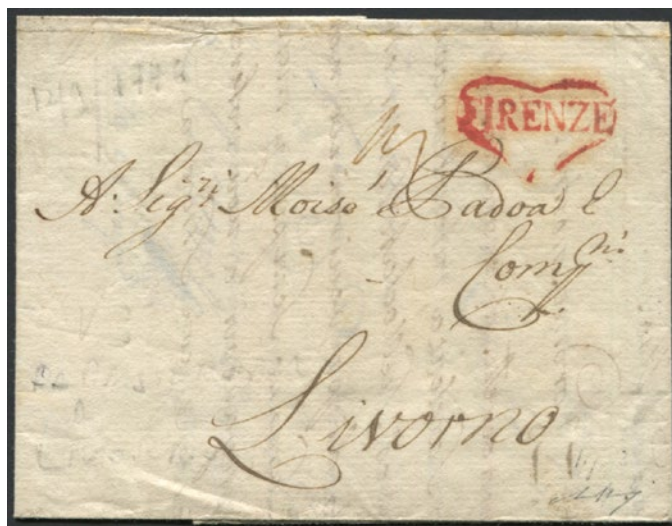 FIRENZE
A: Sig.ri Moisè Padoa e
Comp.ni
Livorno